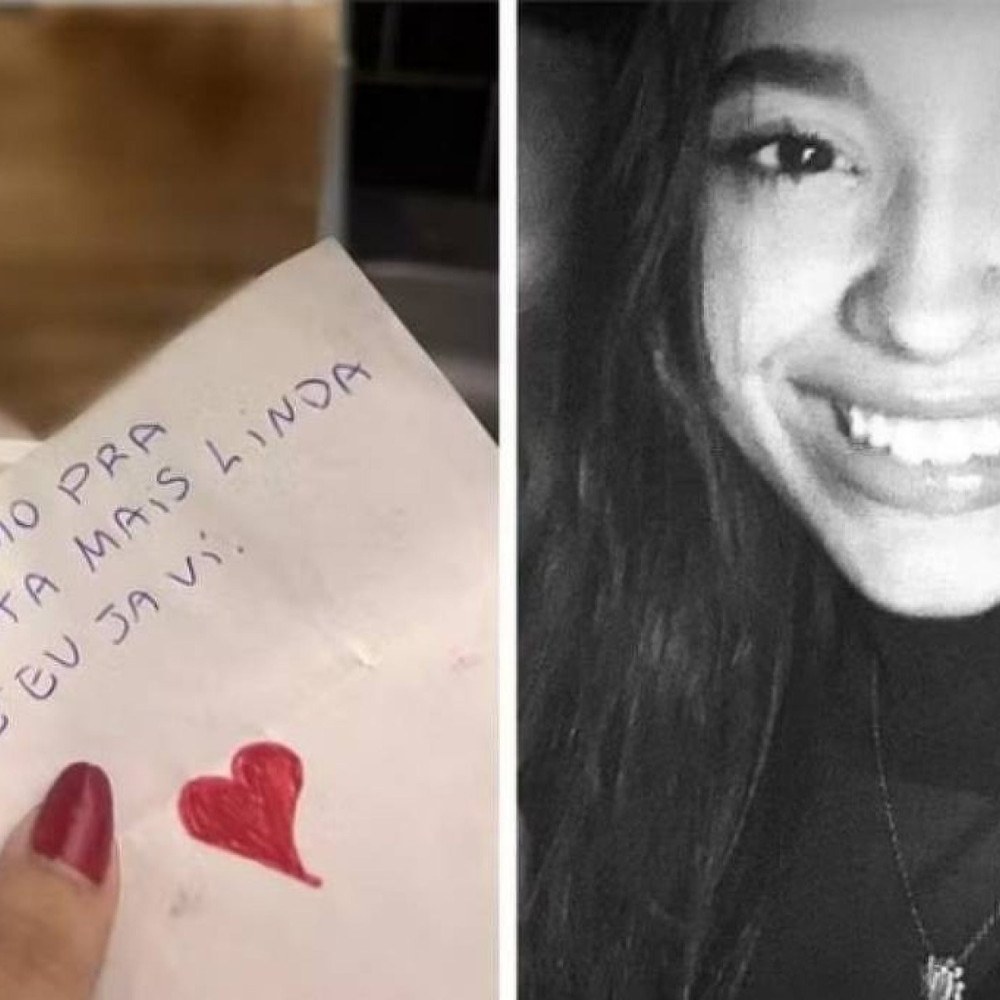 PRA
MAIS LINDA
EU JA VI.